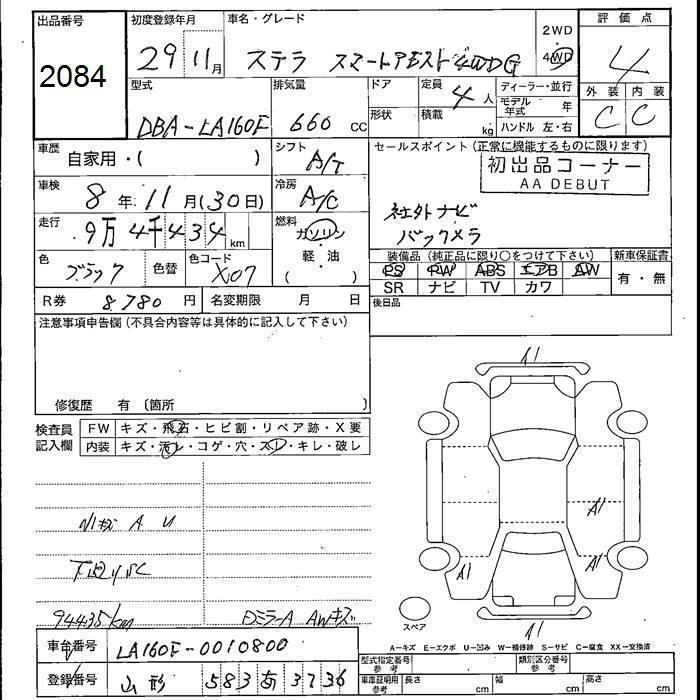 出品番号
2084
初度登録年月
29 11月
車名・グレード
ステラ スマートアシスト 4WD G
2WD
4WD
評価点
4
外装 内装
C C
型式
DBA-LA160F
排気量
660 cc
ドア
形状
定員
4人
積載
kg
ディーラー・並行
モデル年式 年
ハンドル 左・右
車歴
自家用・( )
シフト
A/T
セールスポイント(正常に機能するものに限ります)
初出品コーナー
AA DEBUT
車検
8年 11月(30日)
冷房
A/C
社外ナビ
バックカメラ
走行
9万4千434 km
燃料
ガソリン
軽・油
( )
色
ブラック
色替
色コード
X07
装備品(純正品に限り○をつけて下さい)
PS PW ABS エアB AW
SR ナビ TV カワ
新車保証書
有・無
R券 8780 円
名変期限 月 日
後日品
注意事項申告欄(不具合内容等は具体的に記入して下さい)
修復歴 有〔箇所 〕
検査員記入欄
FW キズ・飛石・ヒビ割・リペア跡・X要
内装 キズ・汚レ・コゲ・穴・スレ・キレ・破レ
小キズ A U
下回りSC
94435km
DミラーA AWキズ
A1
A1
A1
A1
A1
スペア
A-キズ E-エクボ U-凹み W-補修跡 S-サビ C-腐食 XX-交換済
車台番号
LA160F-0010800
登録番号
山形 583 あ 3736
型式指定番号 参考
類別区分番号 参考
車庫証明用 参考
長さ cm
幅 cm
高さ cm